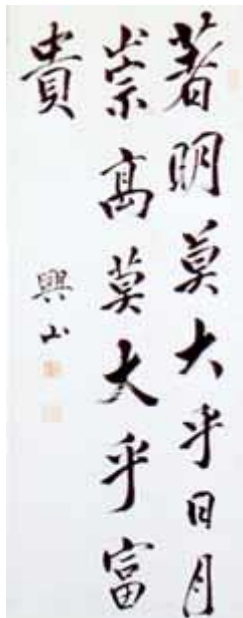 著明莫大乎日月
崇高莫大乎富
貴
興山